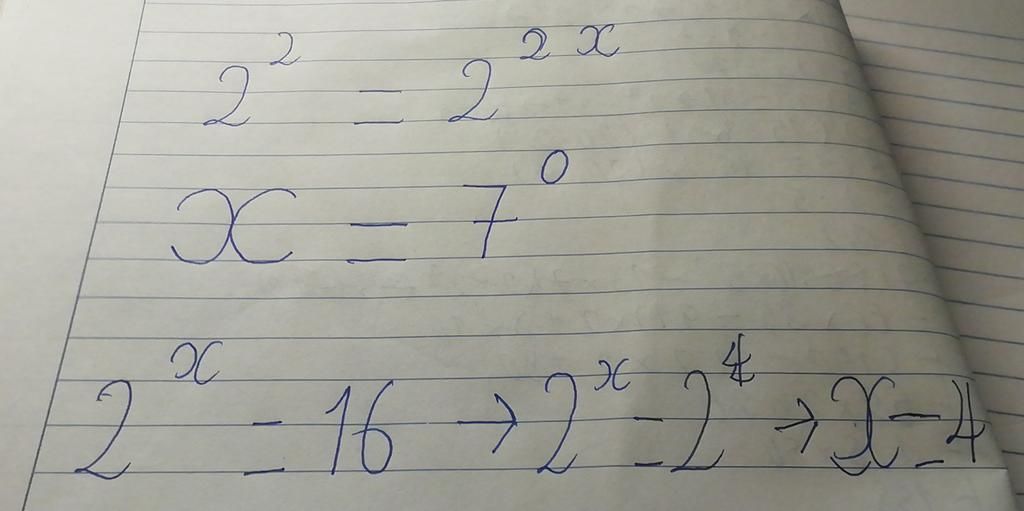 2² = 2²ˣ
x = 7⁰
2ˣ = 16 → 2ˣ = 2⁴ → x = 4